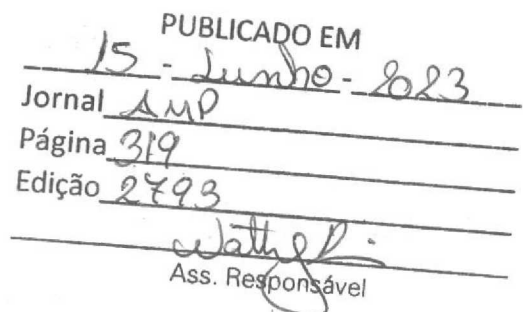 PUBLICADO EM
15 - Junho - 2023
Jornal AMP
Página 319
Edição 2793
Ass. Responsável